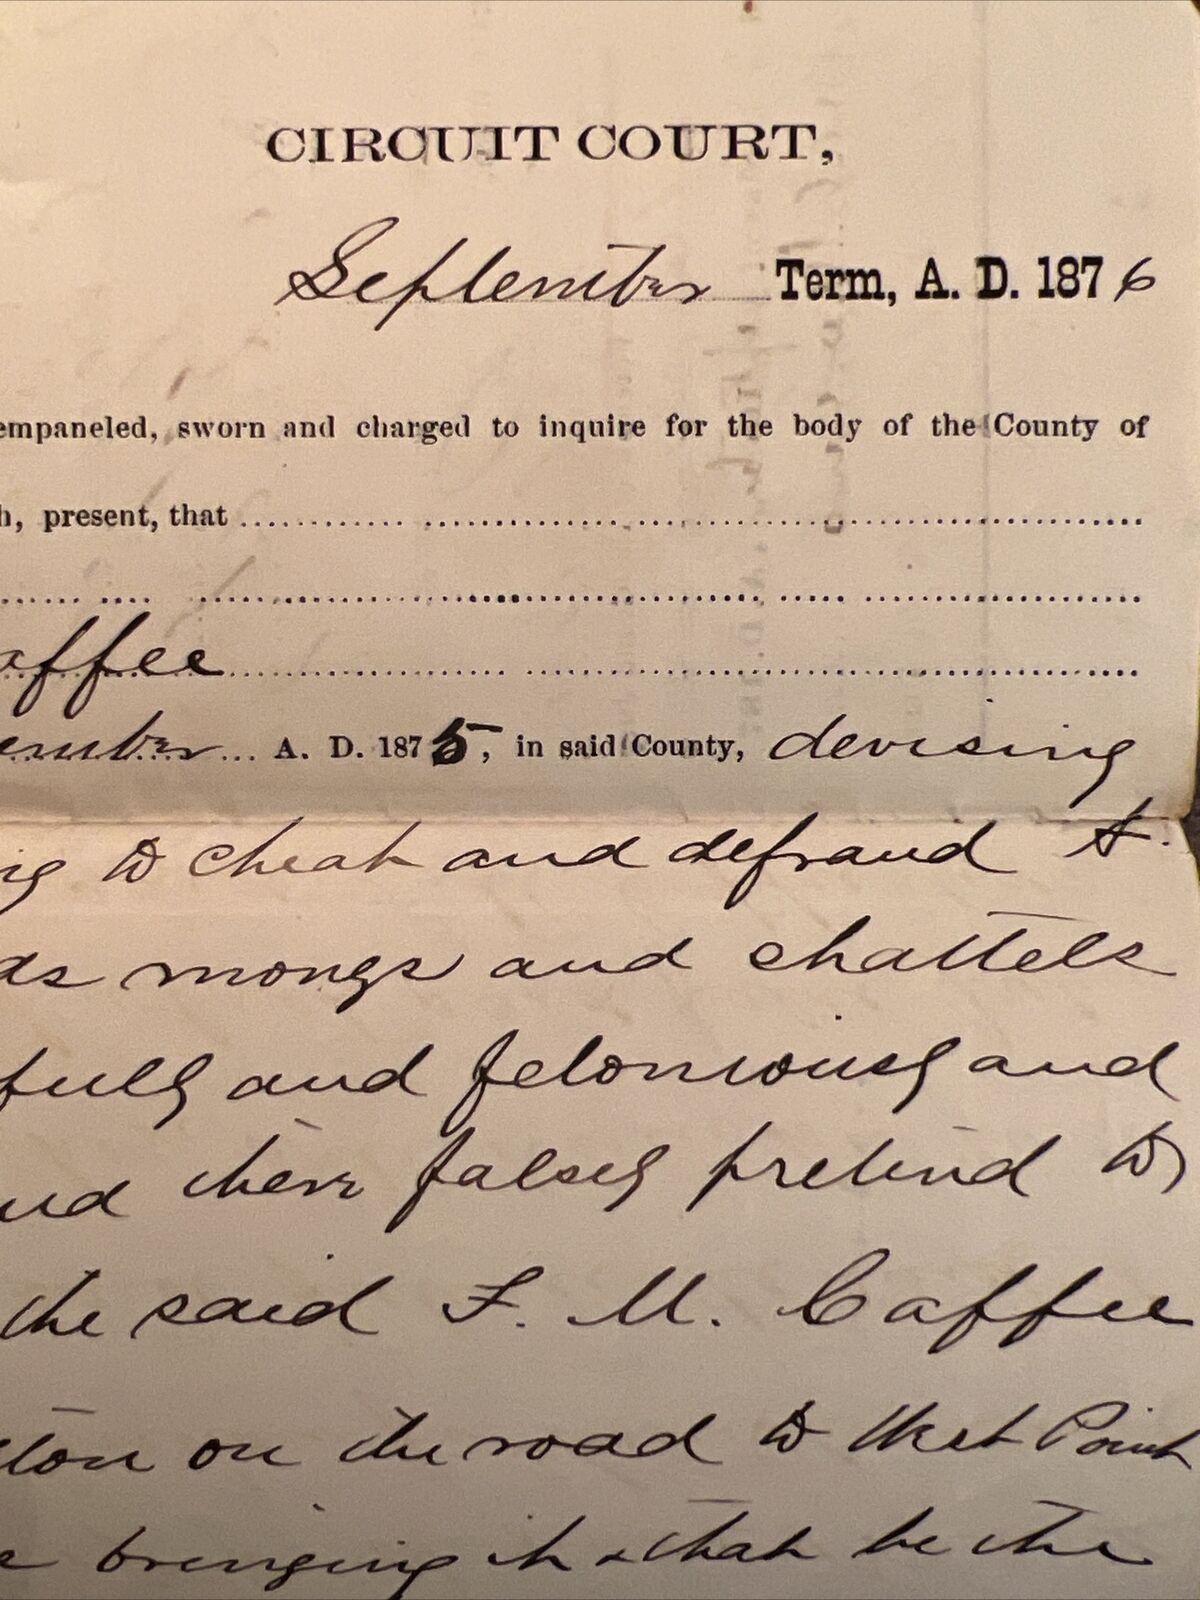 CIRCUIT COURT,
September Term, A. D. 1876
empaneled, sworn and charged to inquire for the body of the County of
h, present, that
affee
ember A. D. 1875, in said County, devising
ng to cheat and defraud A.
ds moneys and chattels
fully and feloniously and
and there falsely pretend to
the said F. M. Caffee
ton on the road to West Point
bringing it & that he the